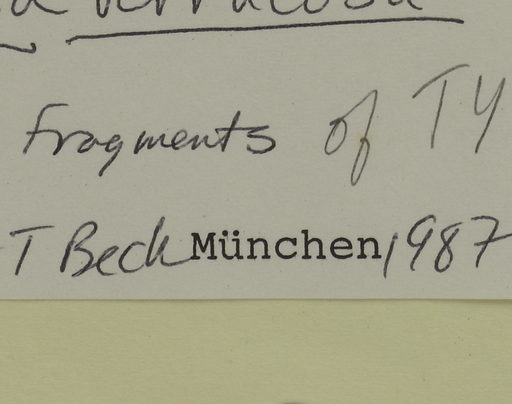 verrucosa
Fragments of TY
T Beck München, 1987